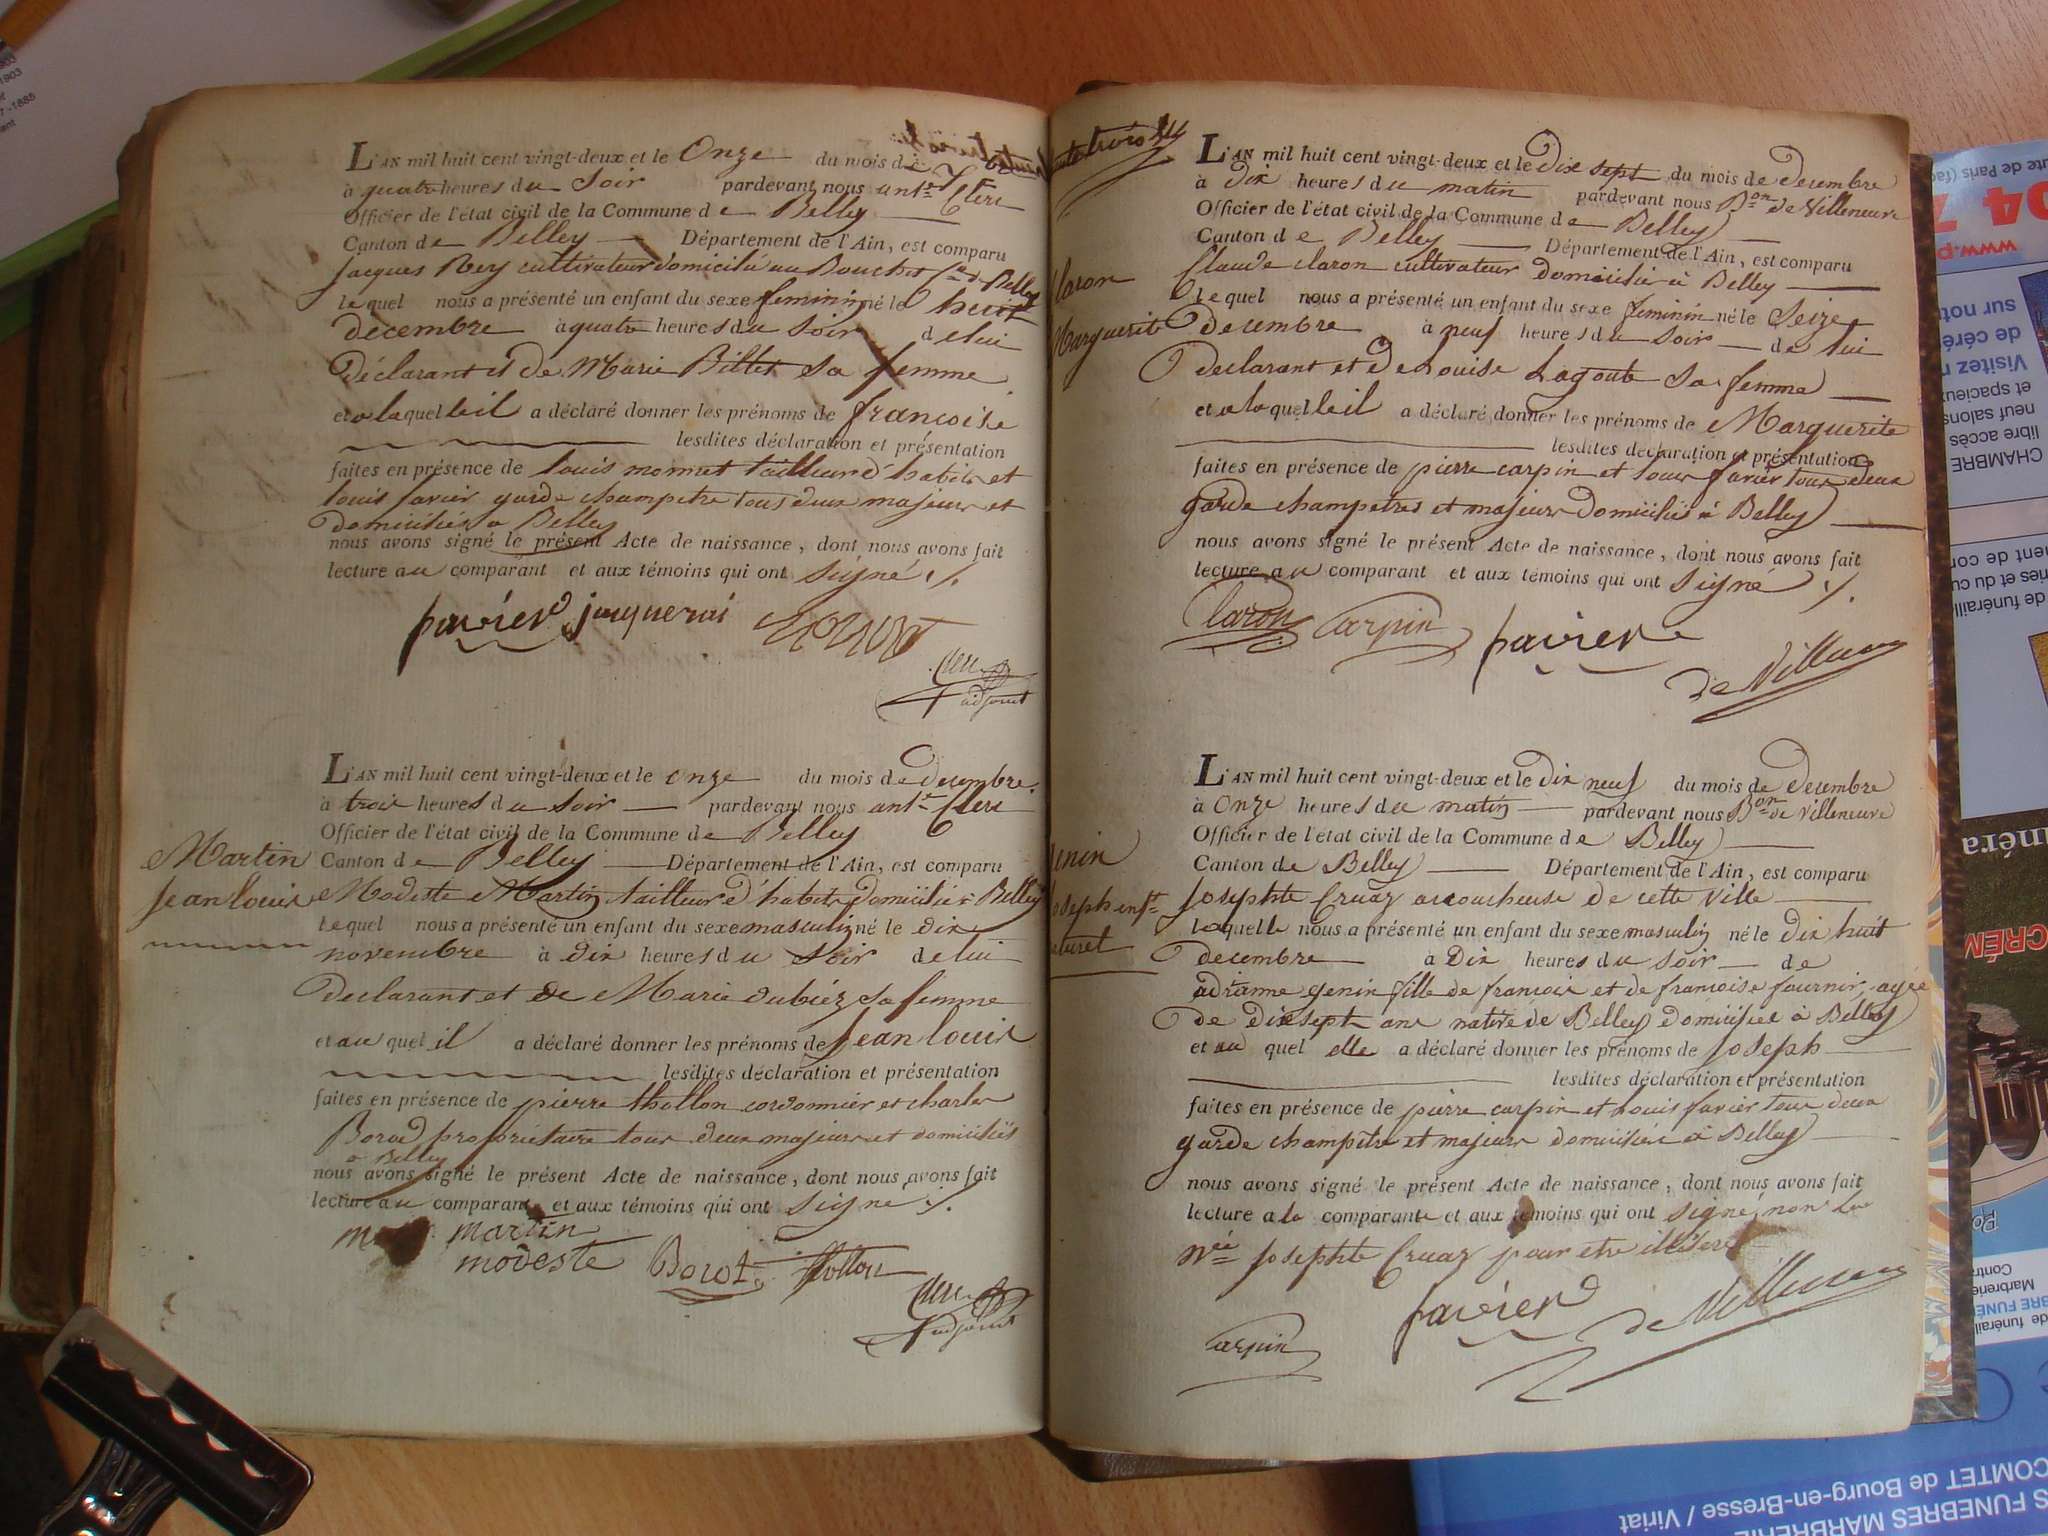 L'AN mil huit cent vingt-deux et le Onze du mois de
à quatre heures du Soir pardevant nous ant.e Clerc
Officier de l'état civil de la Commune de Belley
Canton de Belley Département de l'Ain, est comparu
Jacques Rey cultivateur domicilié au Bouchet Belley
lequel nous a présenté un enfant du sexe feminin né le huit
decembre à quatre heures du Soir de lui
déclarant et de Marie Billet sa femme
et a laquelle il a déclaré donner les prénoms de francoise
lesdites déclaration et présentation
faites en présence de louis monnet tailleur d'habits et
louis favier garde champetre tous deux majeurs et
domiciliés a Belley
nous avons signé le présent Acte de naissance, dont nous avons fait
lecture au comparant et aux témoins qui ont Signé ./.
favier jacque rai
Clerc
adjoint
L'AN mil huit cent vingt-deux et le onze du mois de decembre
à trois heures du Soir pardevant nous ant.e Clerc
Officier de l'état civil de la Commune de Belley
Martin
Canton de Belley Département de l'Ain, est comparu
Jean louis
Modeste Martin tailleur d'habits domicilié à Belley
lequel nous a présenté un enfant du sexe masculin né le dix
novembre à dix heures du Soir de lui
declarant et de Marie dubiez sa femme
et au quel il a déclaré donner les prénoms de Jean louis
lesdites déclaration et présentation
faites en présence de pierre thollon cordonnier et charles
Borod propriétaire tous deux majeurs et domiciliés
a Belley
nous avons signé le présent Acte de naissance, dont nous avons fait
lecture au comparant et aux témoins qui ont Signé ./.
martin
modeste Borot thollon
Clerc
adjoint
L'AN mil huit cent vingt-deux et le dix sept du mois de decembre
à dix heures du matin pardevant nous B.on de Villeneuve
Officier de l'état civil de la Commune de Belley
Canton de Belley Département de l'Ain, est comparu
Claron
Claude claron cultivateur domicilié à Belley
lequel nous a présenté un enfant du sexe feminin né le Seize
Marguerite
decembre à neuf heures du soir de lui
declarant et de Louise Lagoute Sa femme
et a laquelle il a déclaré donner les prénoms de Marguerite
lesdites déclaration et présentation
faites en présence de pierre carpin et louis favier tous deux
garde champetres et majeurs domiciliés à Belley
nous avons signé le présent Acte de naissance, dont nous avons fait
lecture au comparant et aux témoins qui ont Signé ./.
Claron Carpin favier
de Villeneuve
L'AN mil huit cent vingt-deux et le dix neuf du mois de decembre
à Onze heures du matin pardevant nous B.on de Villeneuve
Officier de l'état civil de la Commune de Belley
Genin
Canton de Belley Département de l'Ain, est comparu
Joseph enf.t
Josephte Cruaz accoucheuse de cette Ville
laquelle nous a présenté un enfant du sexe masculin né le dix huit
naturel
decembre à Dix heures du Soir de
adrianne genin fille de francois et de francoise fournier, agée
de dix sept ans native de Belley domiciliée à Belley
et au quel elle a déclaré donner les prénoms de Joseph
lesdites déclaration et présentation
faites en présence de pierre carpin et Louis favier tous deux
garde champetre et majeurs domiciliés à Belley
nous avons signé le présent Acte de naissance, dont nous avons fait
lecture a la comparante et aux témoins qui ont signé, non
Josephte Cruaz pour etre
favier de Villeneuve
Carpin
1903
-1885
ute de Paris
04 7
www.p
sur not
de céré
Visitez n
et spacieux
neuf salons
libre accès
CHAMBRE
CRÉM
S FUNEBRES MARBRERIE
COMTET de Bourg-en-Bresse / Viriat